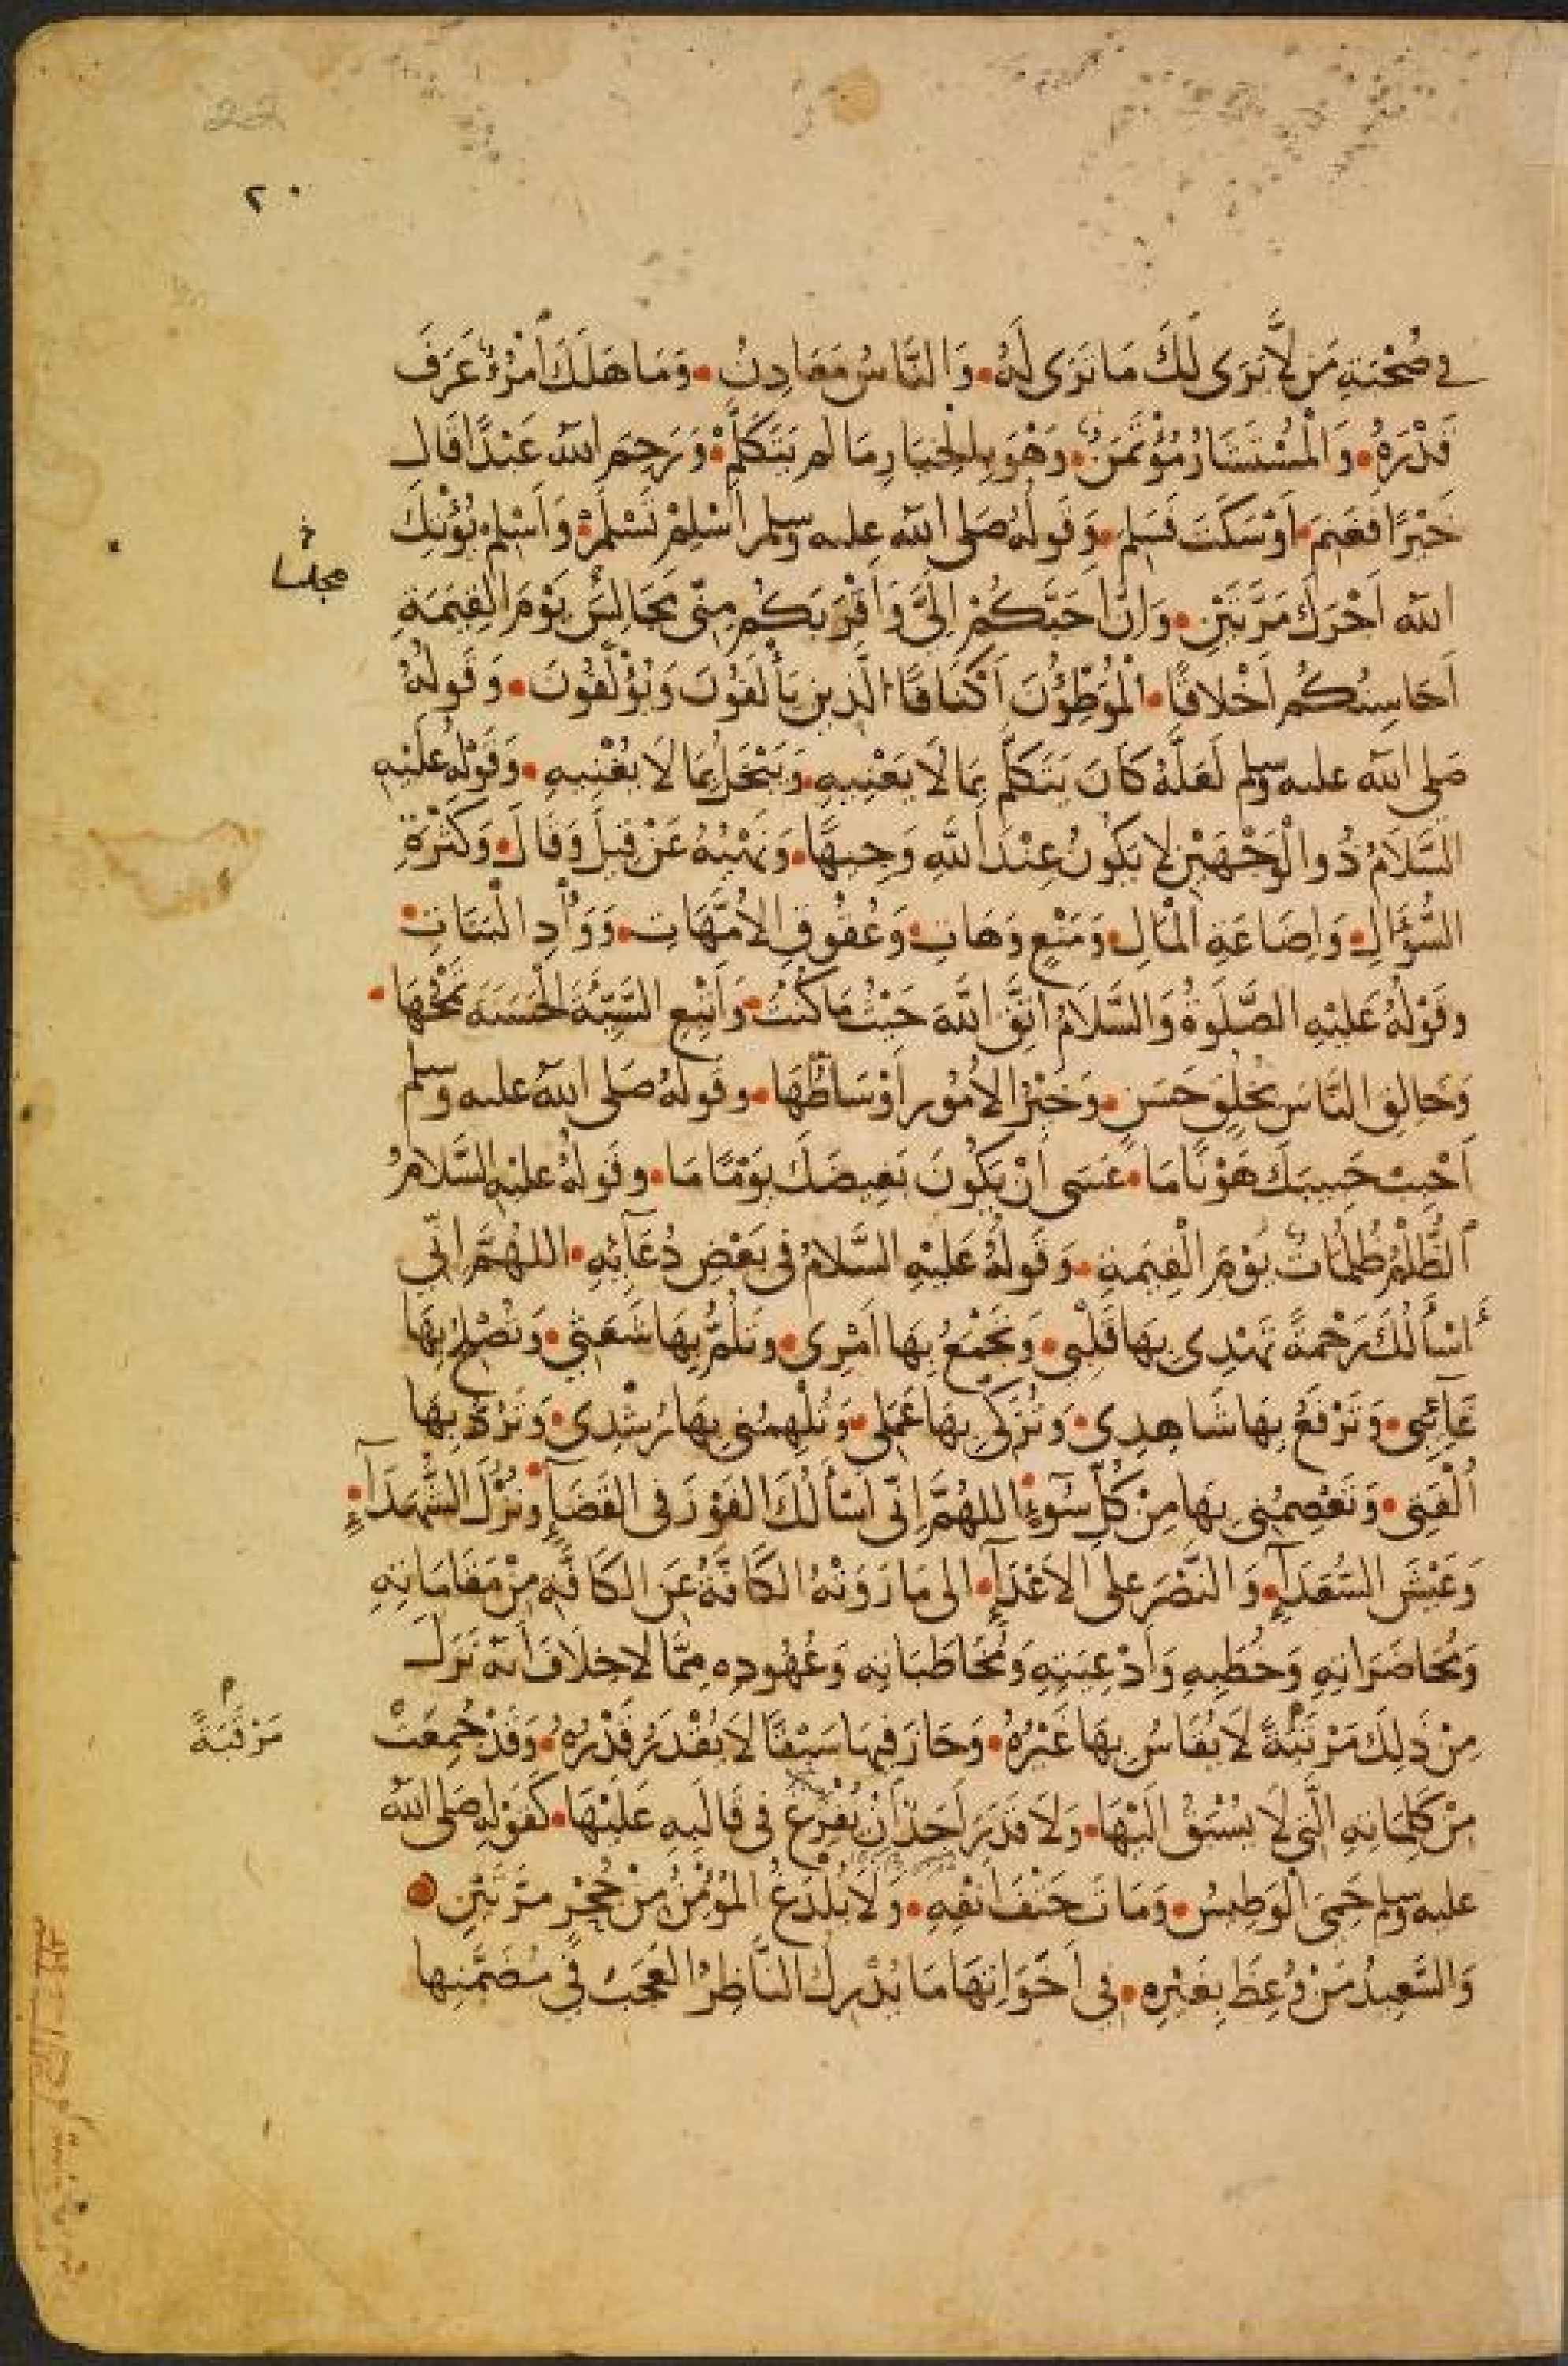 ٢٠
في صُحْبَتِهِ مَن لَّا يَرَى لَكَ مَا تَرَى لَهُ • وَالنَّاسُ مَعَادِنُ • وَمَا هَلَكَ امْرُؤٌ عَرَفَ
قَدْرَهُ • وَالْمُسْتَشَارُ مُؤْتَمَنٌ • وَهُوَ بِالْخِيَارِ مَا لَم يَتَكَلَّمْ • وَرَحِمَ اللهُ عَبْدًا قَالَ
خَيْرًا فَغَنِمَ • اَوْ سَكَتَ فَسَلِمَ • وَقَولُهُ صَلى الله عليه وسلم اَسْلِمْ تَسْلَمْ • وَاَسْلِمْ يُؤْتِكَ
خ
مجلسا
الله اَجْرَكَ مَرَّتَيْنِ • وَاِنَّ اَحَبَّكُمْ اِلَىَّ وَاَقْرَبَكُم مِنّى مَجَالِسَ يَوْمَ الْقِيٰمَةِ
اَحَاسِنُكُم اَخْلاقًا • الْمُوَطَّؤُنَ اَكْنَافًا الَّذِينَ يَأْلَفُونَ وَيُؤْلَفُونَ • وَقَولُهُ
صَلى الله عليه وسلم لَعَلَّهُ كَانَ يَتَكَلَّمُ بِمَا لَا يَعْنِيهِ • وَيَبْخَلُ بِمَا لَا يُغْنِيهِ • وَقَوْلُهُ عَلَيْهِ
السَّلَامُ ذُو الْوَجْهَيْنِ لا يَكُونُ عِنْدَ اللهِ وَجِيهًا • وَنَهْيُهُ عَنْ قِيلَ وَقَالَ • وَكَثْرَةِ
السُّؤَالِ • وَاِضَاعَةِ الْمَالِ • وَمَنْعٍ وَهَاتِ • وَعُقُوقِ الاُمَّهَاتِ • وَوَأْدِ الْبَنَاتِ •
وقَوْلُهُ عَلَيْهِ الصَّلوةُ وَالسَّلَامُ اتَّقِ اللهَ حَيْثُ مَا كُنْتَ • وَاَتْبِعِ السَّيِّئَةَ الْحَسَنَةَ تَمْحُهَا •
وَخَالِقِ النَّاسَ بِخُلُقٍ حَسَنٍ • وَخَيْرُ الاُمُورِ اَوْسَاطُهَا • وقَولُهُ صَلى الله عليه وسلم
اَحْبِبْ حَبِيبَكَ هَوْنًا مَا • عَسَى أَنْ يَكُونَ بَغِيضَكَ يَوْمًا مَا • وقَولُهُ عَلَيْهِ السَّلَامُ
الظُّلْمُ ظُلُمَاتٌ يَوْمَ الْقِيٰمَةِ • وَقَولُهُ عَلَيْهِ السَّلامُ فى بَعْضِ دُعَآئِهِ • اللهُمَّ اِنّى
اَسْأَلُكَ رَحْمَةً تَهْدِى بِهَا قَلْبِى • وَتَجْمَعُ بِهَا اَمْرِى • وتَلُمُّ بِهَا شَعَثِى • وَتُصْلِحُ بِهَا
غَآئِبِى • وَتَرْفَعُ بِهَا شَاهِدِى • وَتُزَكِّى بِهَا عَمَلِى • وَتُلْهِمُنِى بِهَا رُشْدِى • وَتَرُدُّ بِهَا
اُلْفَتِى • وَتَعْصِمُنِى بِهَا مِنْ كُلِّ سُوءٍ • اللهُمَّ اِنّى اَسْأَلُكَ الفَوْزَ فى القَضَآءِ • وَنُزُلَ الشُّهَدَآءِ •
وَعَيْشَ السُّعَدَآءِ • وَالنَّصْرَ عَلى الاَعْدَآءِ • الى مَا رَوَتْهُ الكَافَّةُ عَنِ الكَافَّةِ مِنْ مَقَامَاتِهِ
وَمُحَاضَرَاتِهِ وَخُطَبِهِ وَاَدْعِيَتِهِ وَمُخَاطَبَاتِهِ وَعُهُودِهِ مِمَّا لا خِلَافَ أَنَّهُ نَزَلَ
م
مَرْقَبَةً
مِنْ ذَلِكَ مَرْتَبَةً لَا يُقَاسُ بِهَا غَيْرُهُ • وَحَازَ فِيهَا سَبْقًا لَا يُقْدَرُ قَدْرُهُ • وَقَدْ جُمِعَتْ
مِنْ كَلِمَاتِهِ الَّتِى لَا يُسْبَقُ اِلَيْهَا • وَلَا قَدَرَ اَحَدٌ اَنْ يُفْرِغَ فى قَالَبِهِ عَلَيْهَا • كَقَوْلِهِ صَلى الله
عليه وسلم حَمِىَ الْوَطِيسُ • وَمَاتَ حَتْفَ اَنْفِهِ • وَلَا يُلْدَغُ المُؤْمِنُ مِنْ جُحْرٍ مَرَّتَيْنِ •
وَالسَّعِيدُ مَنْ وُعِظَ بِغَيْرِهِ • فِى اَخَوَاتِهَا مَا يُدْرِكُ النَّاظِرُ العَجَبَ فِى مُضَمَّنِهَا